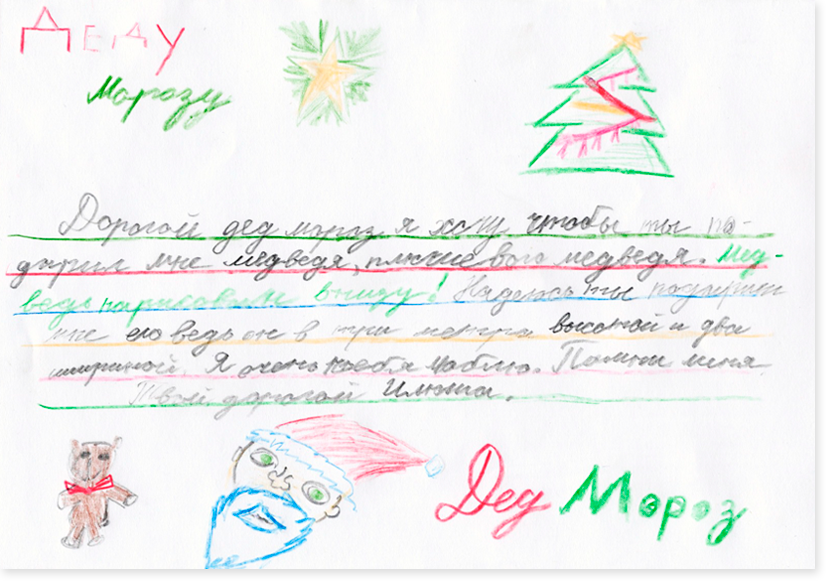 Деду
Морозу
Дорогой дед мороз я хочу чтобы ты по-
дарил мне медведя, плюшевого медведя. Мед-
ведь нарисован внизу! Надеюсь ты подаришь
мне его ведь он в три метра высотой и два
шириной. Я очень тебя люблю. Помни меня.
Твой дорогой Илюша.
Дед Мороз